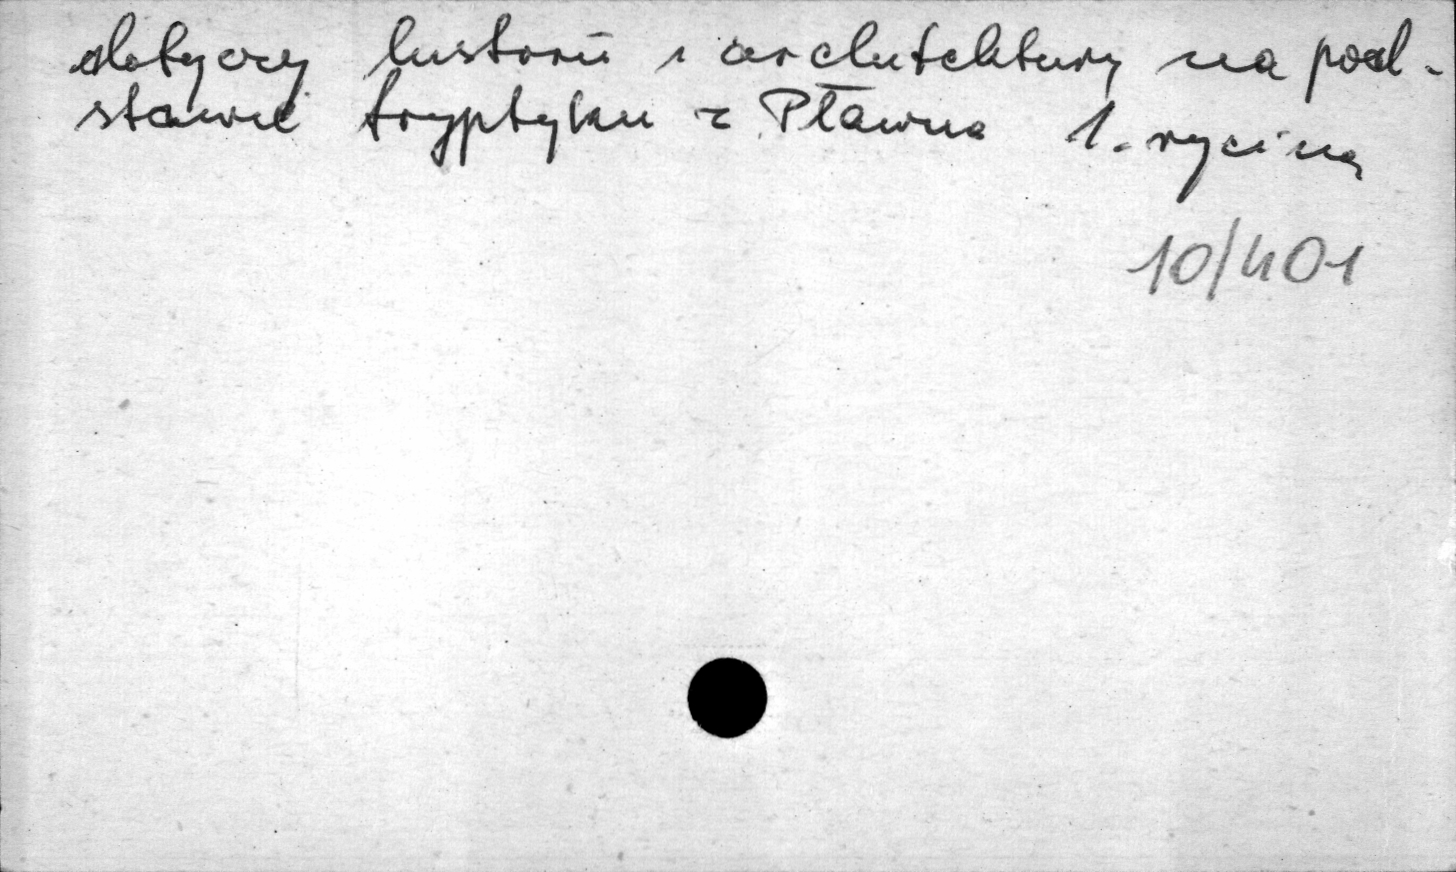 dotyczy historii i architektury na pod-
stawie tryptyku z Pławna 1. rycina
10/401